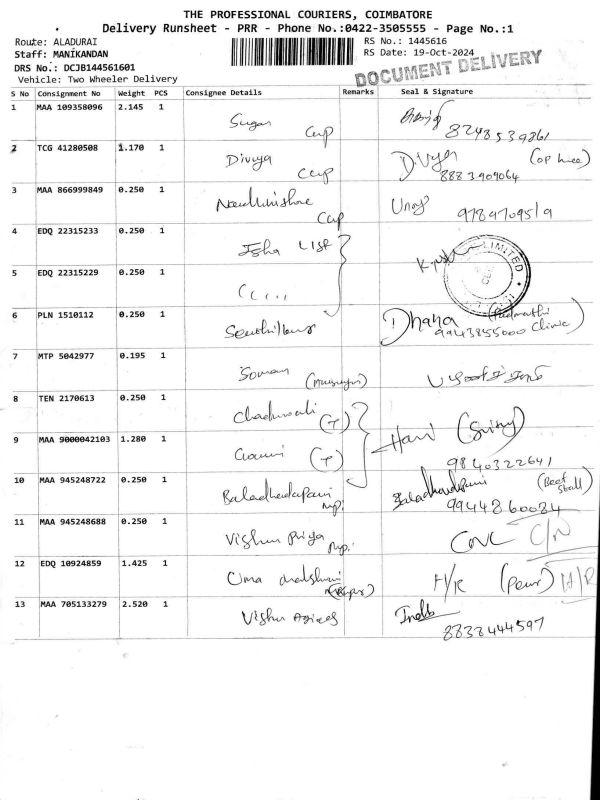 THE PROFESSIONAL COURIERS, COIMBATORE
Delivery Runsheet - PRR - Phone No.:0422-3505555 - Page No.:1
Route: ALADURAI
RS No.: 1445616
Staff: MANIKANDAN
RS Date: 19-Oct-2024
DRS No.: DCJB144561601
Vehicle: Two Wheeler Delivery
DOCUMENT DELIVERY
S No Consignment No Weight PCS Consignee Details Remarks Seal & Signature
1 MAA 109358096 2.145 1
Cup 8248539861
2 TCG 41280508 1.170 1 Divya Divya
Cup 8883909064
3 MAA 866999849 0.250 1
Cup 9789709519
4 EDQ 22315233 0.250 1 Isha
LIMITED
5 EDQ 22315229 0.250 1
6 PLN 1510112 0.250 1 Senthilkumar Dhana
9943855000 Clinic
7 MTP 5042977 0.195 1
8 TEN 2170613 0.250 1
(T) Hari
9 MAA 9000042103 1.280 1 Gowri (T)
9840322641
10 MAA 945248722 0.250 1 Baladhandapani Baladhandapani (Beef Stall)
9944860034
11 MAA 945248688 0.250 1 Vishnu Priya CNC C/N
12 EDQ 10924859 1.425 1 Uma H/R H/R
13 MAA 705133279 2.520 1 Vishnu
8838444597